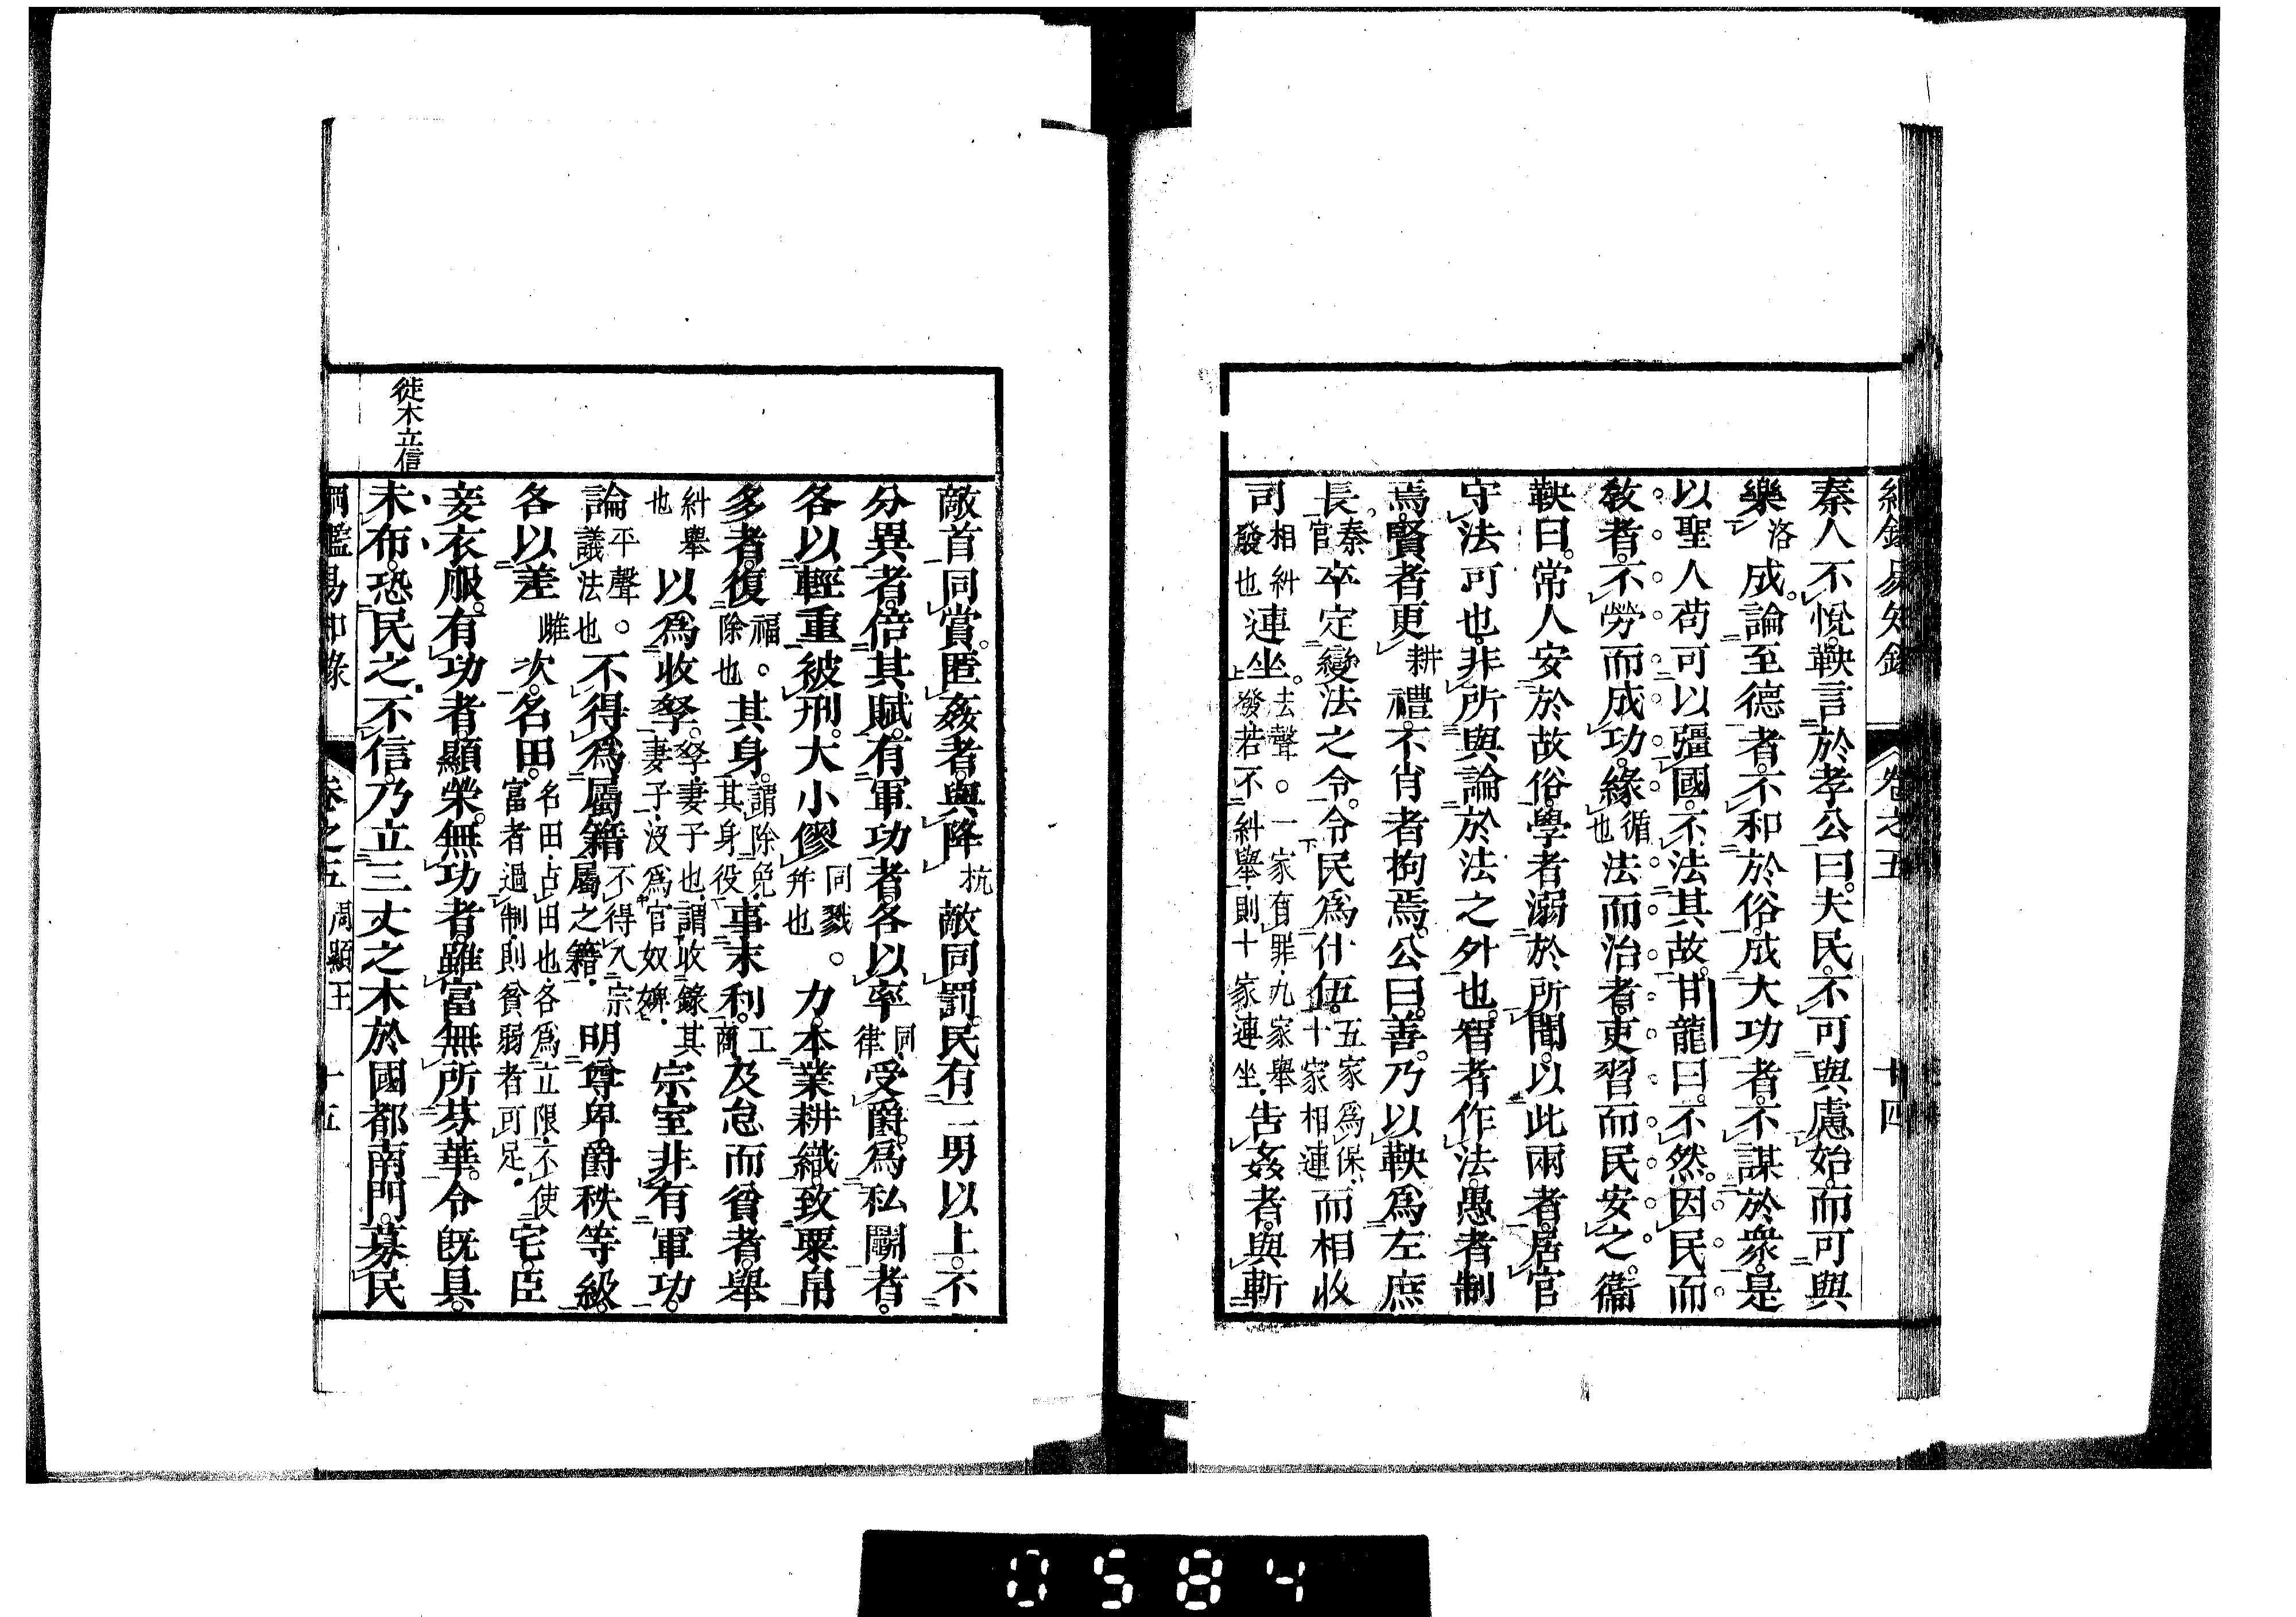 綱鑑易知錄 卷之五 十四
秦人不悅。鞅言於孝公曰。夫民。不可與慮始。而可與
樂洛成。論至德者。不和於俗。成大功者。不謀於衆。是
以聖人苟可以彊國。不法其故。甘龍曰。不然。因民而
教者。不勞而成功。緣循也法而治者。吏習而民安之。衞
鞅曰。常人安於故俗。學者溺於所聞。以此兩者。居官
守法可也。非所與論於法之外也。智者作法。愚者制
焉。賢者更耕禮。不肖者拘焉。公曰。善。乃以鞅爲左庶
長。秦官卒定變法之令。令民爲什伍。五家爲保、十家相連而相收
司相糾發也連坐。去聲。一家有罪、九家舉發、若不糾舉、則十家連坐、告姦者。與斬
敵首同賞。匿姦者。與降杭敵同罰。民有二男以上。不
分異者。倍其賦。有軍功者。各以率同律受爵。爲私鬭者。
各以輕重被刑。大小僇同戮。幷也力。本業耕織。致粟帛
多者。復福。除也其身。謂除免其身役事末利。工商及怠而貧者。舉
糾舉也以爲收孥。孥、妻子也、謂收錄其妻子、沒爲官奴婢、宗室非有軍功。
論平聲。議法也不得爲屬籍。不得入宗屬之籍、明尊卑爵秩等級。
各以差雌次。名田。名田、占田也、各爲立限、不使富者過制、則貧弱者可足、宅。臣
妾衣服。有功者。顯榮。無功者。雖富無所芬華。令既具。
未布。恐民之不信。乃立三丈之木於國都南門。募民
徙木立信
綱鑑易知錄 卷之五 周顯王 十五
0584